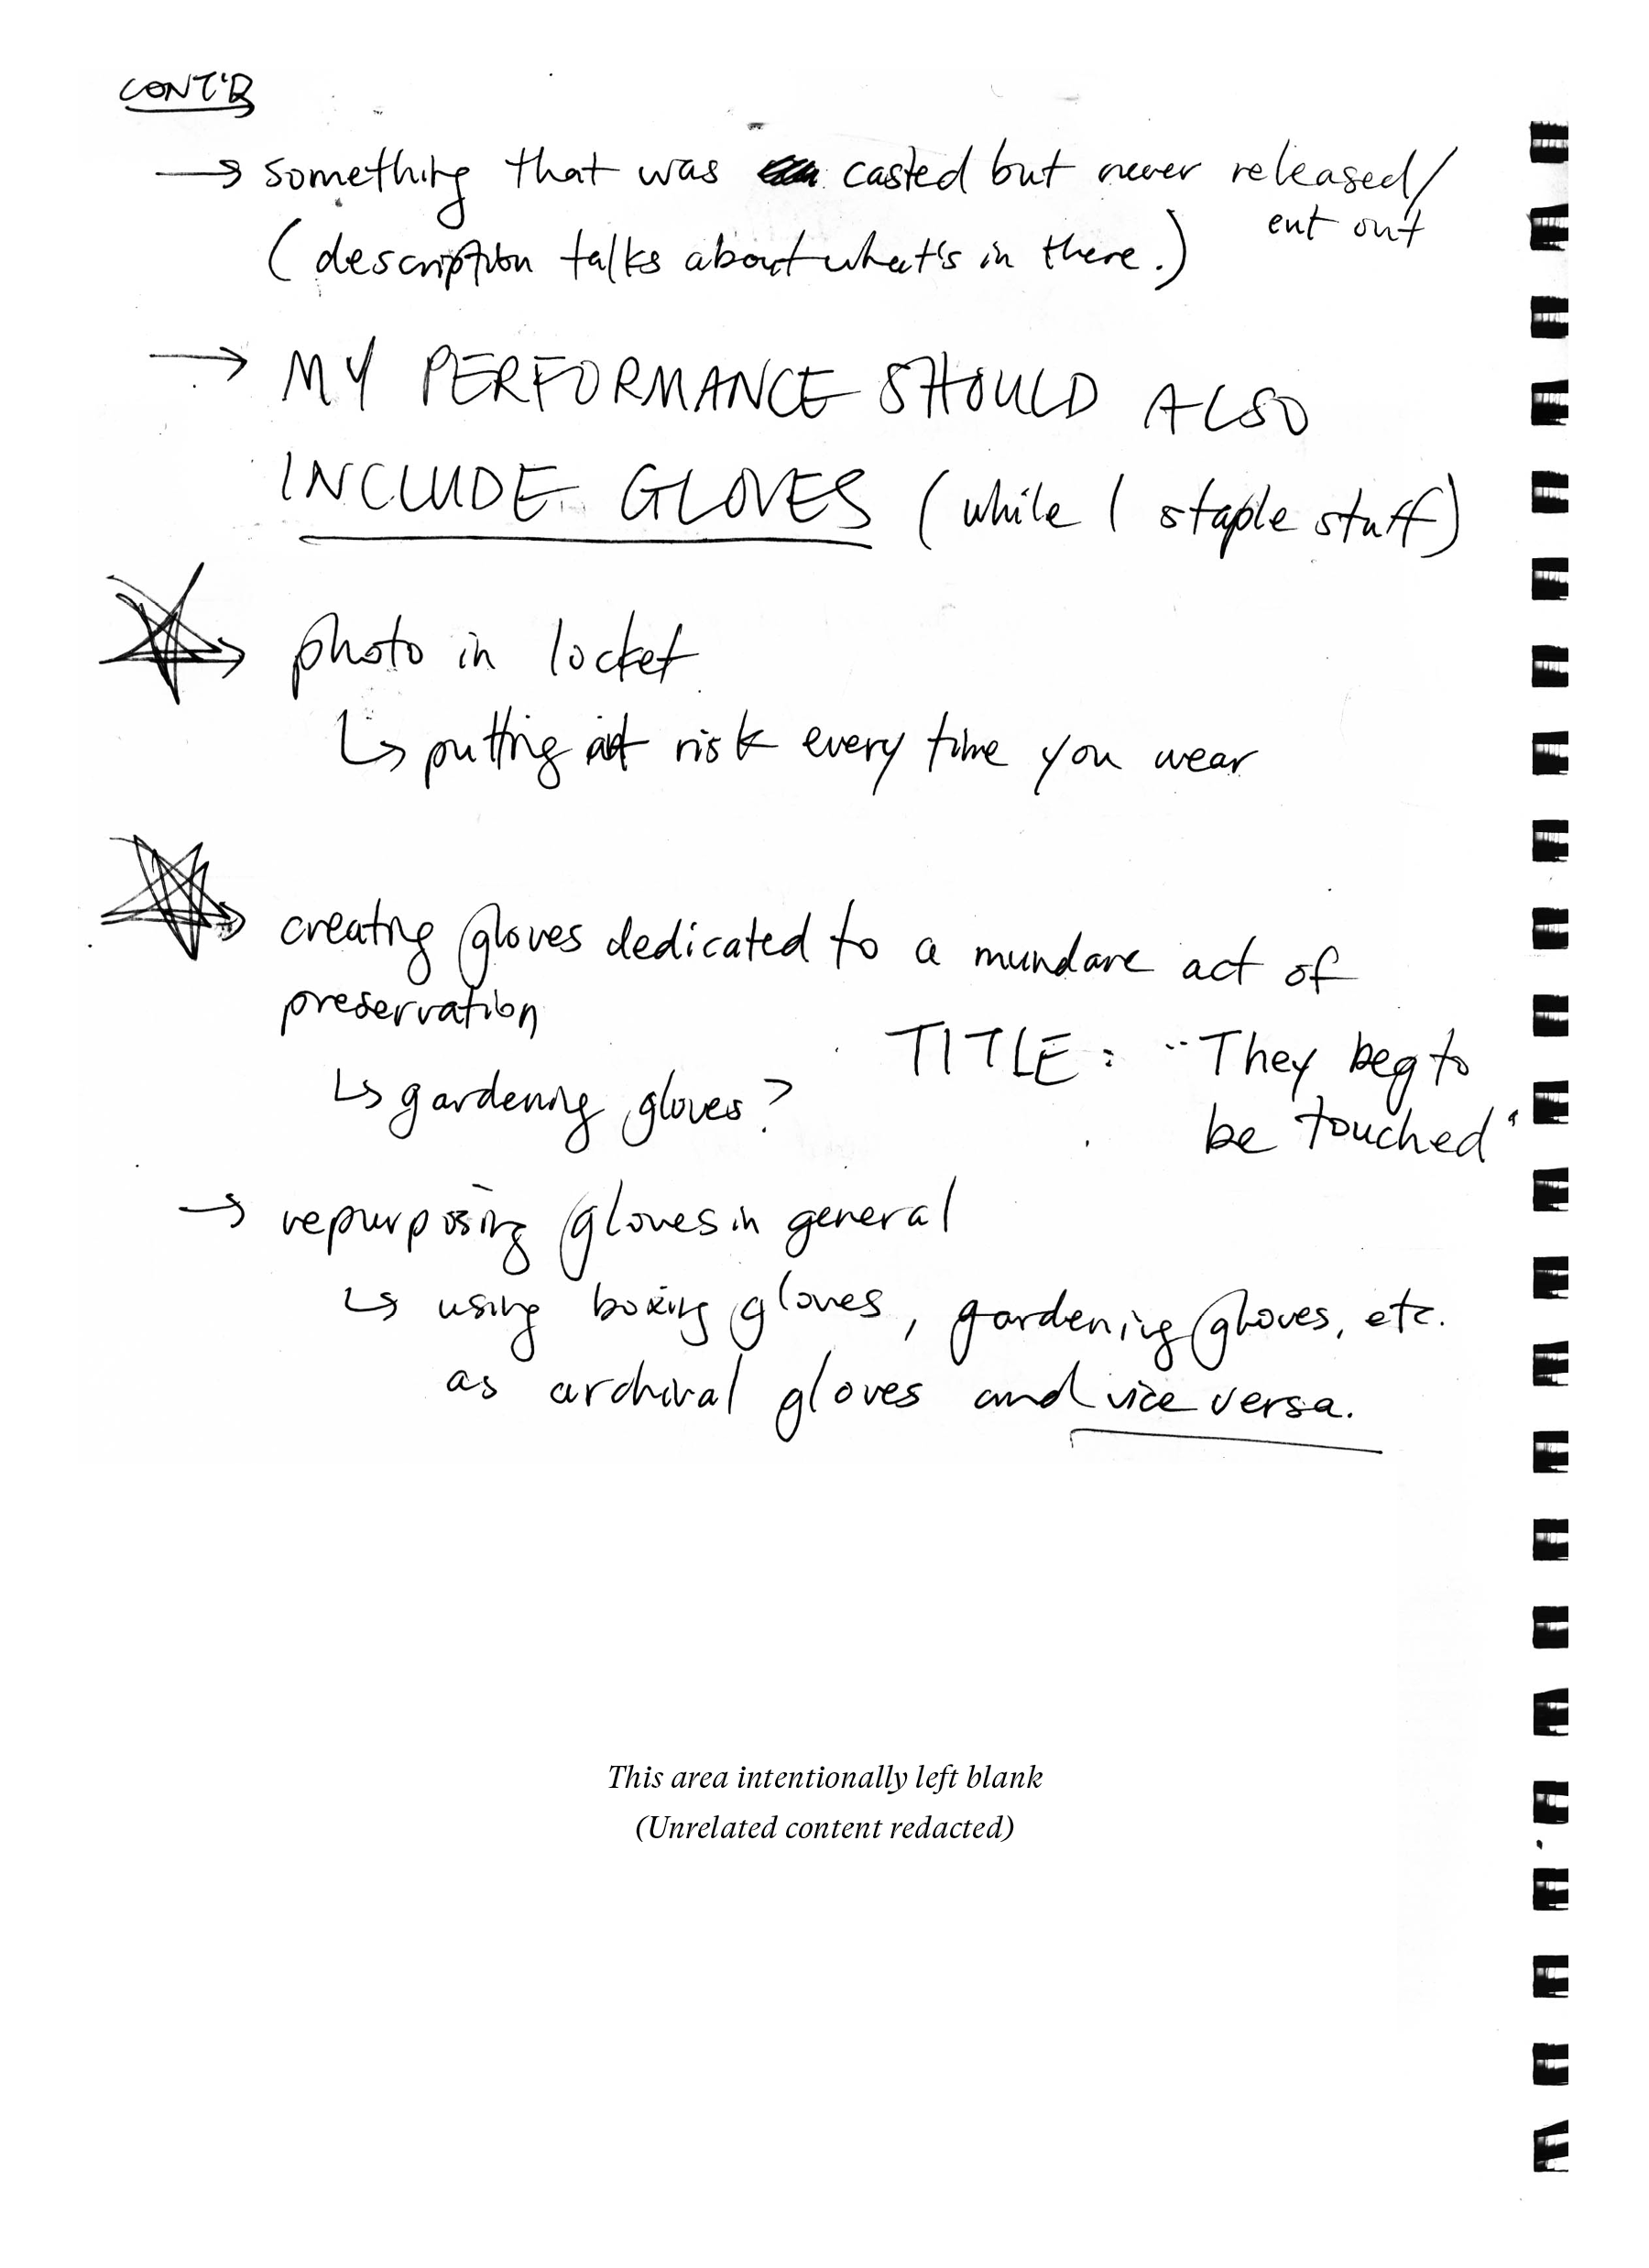 CONT'D
→ something that was casted but never released/
cut out
(description talks about what's in there.)
→ MY PERFORMANCE SHOULD ALSO
INCLUDE GLOVES (while I staple stuff)
→ photo in locket
↳ putting at risk every time you wear
→ creating gloves dedicated to a mundane act of
preservation
TITLE: "They beg to
be touched"
↳ gardening gloves?
→ repurposing gloves in general
↳ using boxing gloves, gardening gloves, etc.
as archival gloves and vice versa.
This area intentionally left blank
(Unrelated content redacted)